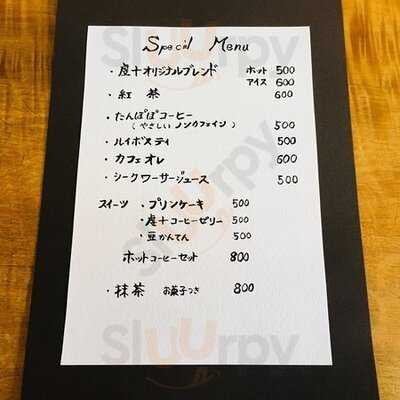 Special Menu
・虔十オリジナルブレンド ホット 500
アイス 600
・紅茶 600
・たんぽぽコーヒー
(やさしい ノンカフェイン) 500
・ルイボスティ 500
・カフェオレ 600
・シークワーサージュース 500
スイーツ ・プリンケーキ 500
・虔十コーヒーゼリー 500
・豆かんてん 500
ホットコーヒーセット 800
・抹茶 お菓子つき 800
Sluurpy
Sluurpy
Sluurpy